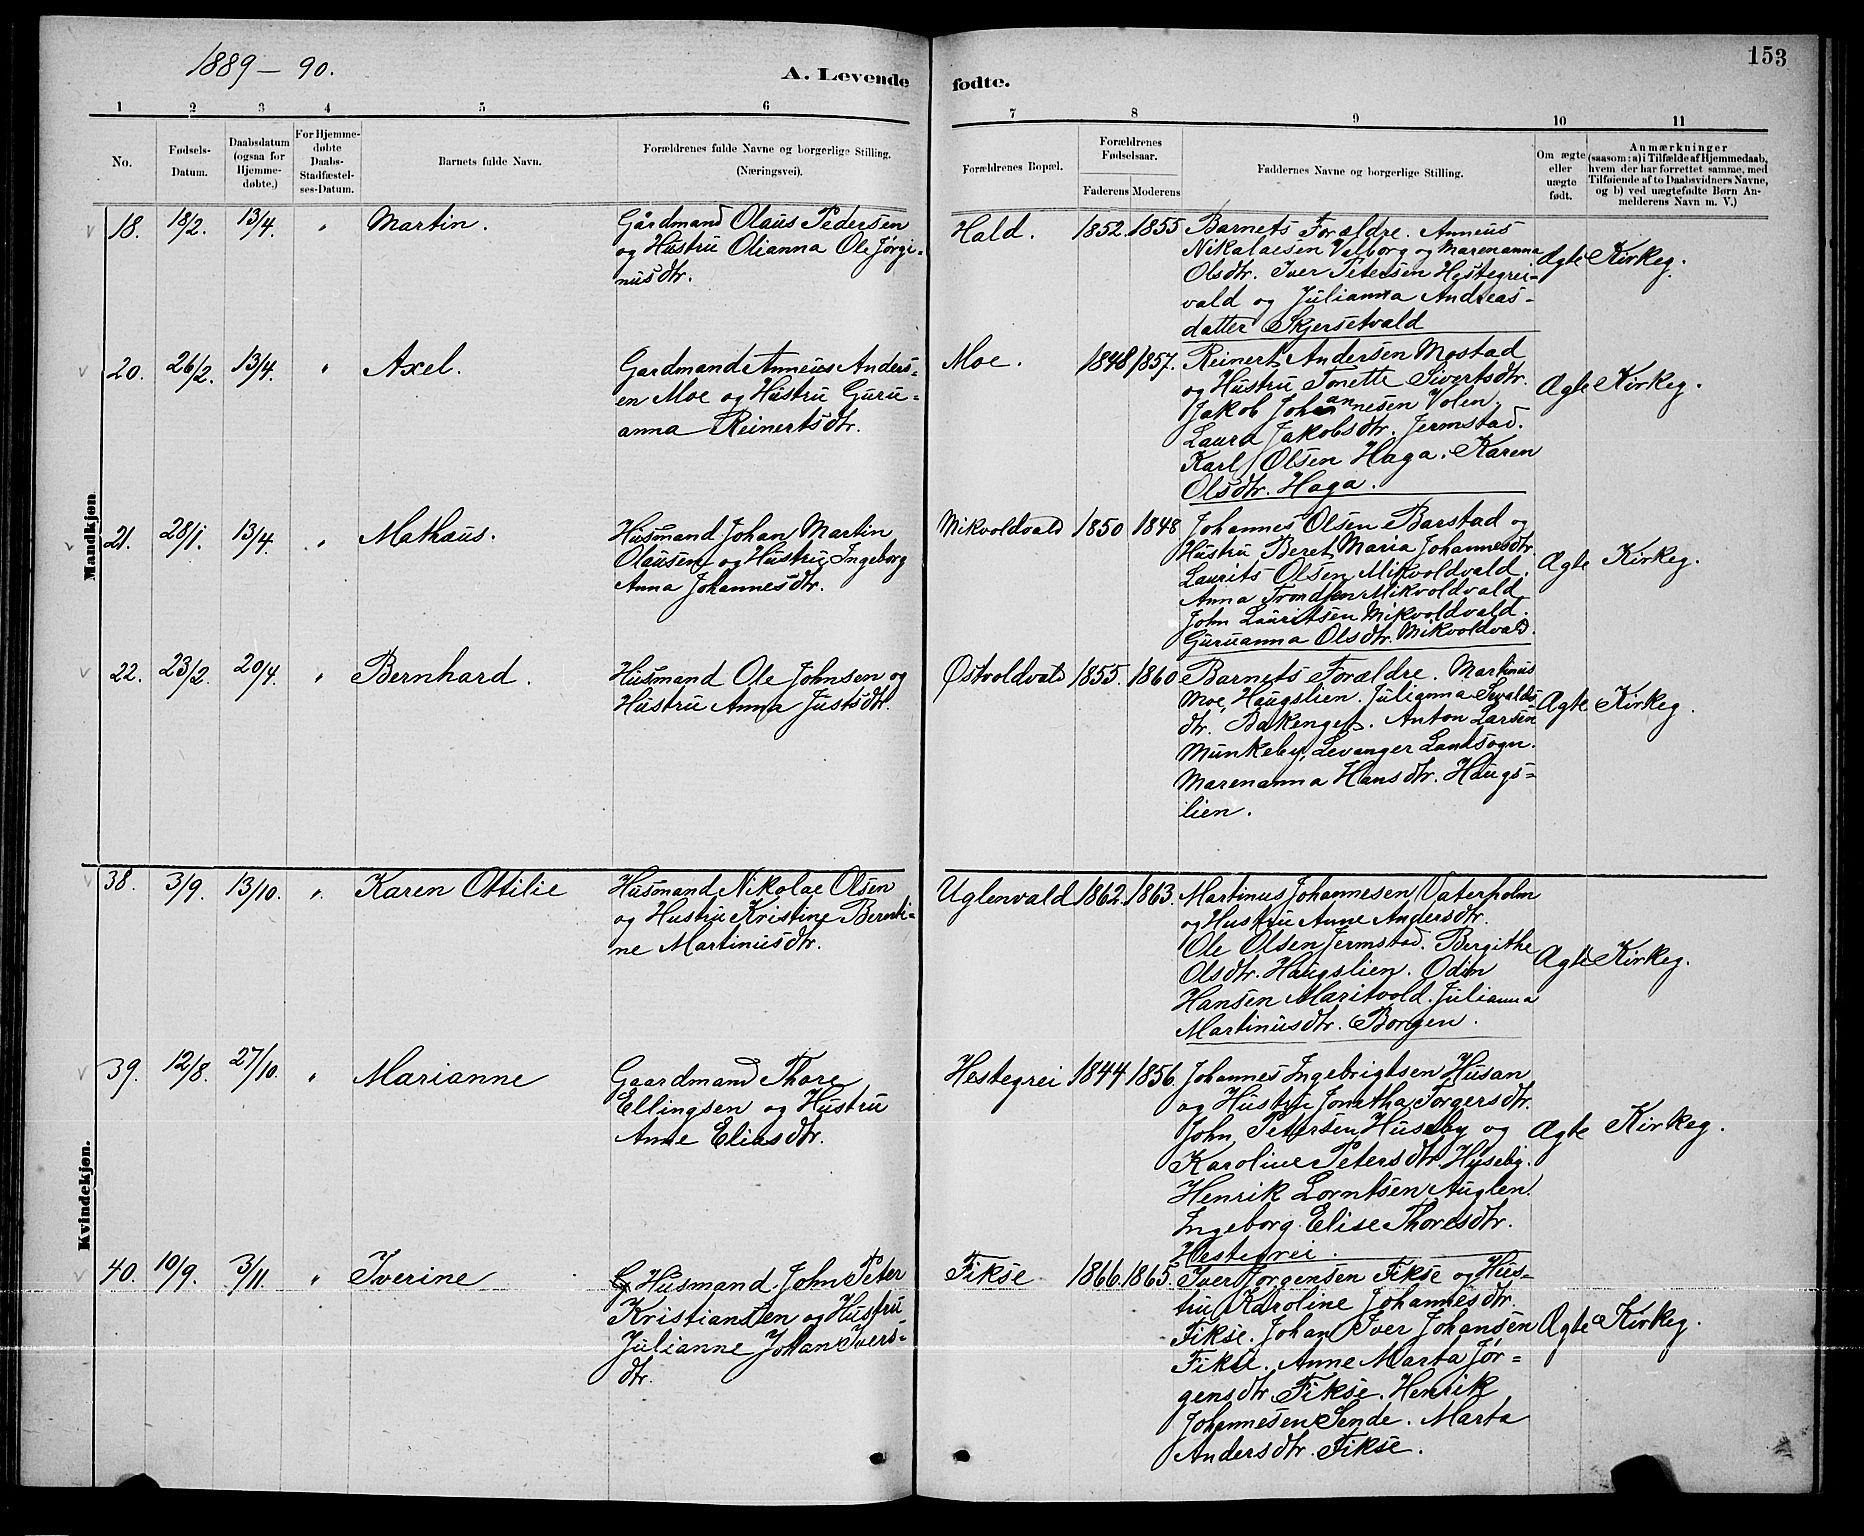 1889 - 90.
A. Levende fødte.
153
1 2 3 4 5 6 7 8 9 10 11
No.
Fødsels-
Datum.
Daabsdatum
(ogsaa for
Hjemme-
døbte.)
For Hjemme-
døbte
Daabs-
Stadfæstel-
ses-Datum.
Barnets fulde Navn.
Forældrenes fulde Navne og borgerlige Stilling.
(Næringsvei).
Forældrenes Bopæl.
Forældrenes
Fødselsaar.
Faderens Moderens
Faddernes Navne og borgerlige Stilling.
Om ægte
eller
uægte
født.
Anmærkninger
(saasom: a) i Tilfælde af Hjemmedaab,
hvem der har forrettet samme, med
Tilføiende af to Daabsvidners Navne,
og b) ved uægtefødte Børn An-
melderens Navn m. V.)
Mandkjøn
18. 18/2. 13/4. " Martin.
Gårdmand Olaus Pedersen
og Hustru Olianna Ole Jørgi-
nusdtr.
Hald. 1852. 1855
Barnets Forældre. Anneus
Nikolaisen Valborg og Marenanna
Olsdtr. Iver Petersen Hestegrei-
vald og Julianna Andreas-
datter Skjersetvald
Ægte Kirkeg.
20. 26/2. 13/4. " Axel.
Gardmand Anneus Anders-
en Moe og Hustru Guru-
anna Reinertsdtr.
Moe. 1848 1857.
Reinert Andersen Mostad
og Hustru Tonette Sivertsdtr.
Jakob Johannesen Volen.
Laura Jakobsdtr. Jermstad.
Karl Olsen Haga. Karen
Olsdtr. Haga.
Ægte Kirkeg.
21. 28/1. 13/4. " Mathæus.
Husmand Johan Martin
Olausen og Hustru Ingeborg
Anna Johannesdtr.
Mikvoldvald 1850 1848
Johannes Olsen Barstad og
Hustru Beret Maria Johannesdtr.
Laurits Olsen Mikvoldvald.
Anna Trondsen Mikvoldvald
John Lauritsen Mikvoldvald.
Guruanna Olsdtr. Mikvoldvald.
Ægte Kirkeg.
22. 23/2. 20/4. " Bernhard.
Husmand Ole Johnsen og
Hustru Anna Justsdtr.
Østvoldvald 1855. 1860
Barnets Forældre. Martinus
Moe, Haugslien. Julianna Sevalds-
dtr. Bakenget. Anton Larsen
Munkeby, Levanger Landsogn.
Marenanna Hansdtr. Haugs-
lien.
Ægte Kirkeg.
Kvindekjøn.
38. 3/9. 13/10. " Karen Ottilie
Husmand Nikolai Olsen
og Hustru Kristine Bernti-
ne Martinusdtr.
Uglenvald 1862. 1863.
Martinus Johannesen Vaterholm
og Hustru Anne Andersdtr.
Ole Olsen Jermstad. Bergithe
Olsdtr. Haugslien. Odin
Hansen Maritvold. Julianna
Martinusdtr. Borgen.
Ægte Kirkeg.
39. 12/8. 27/10. " Marianne
Gaardmand Thore
Ellingsen og Hustru
Anne Eliasdtr.
Hestegrei 1844 1856.
Johannes Ingebrigtsen Husan
og Hustru Jonetha Torgersdtr.
John Petersen Huseby og
Karoline Petersdtr. Hyseby.
Henrik Lorntsen Auglen.
Ingeborg Elise Thoresdtr.
Hestegrei.
Ægte Kirkeg.
40. 10/9. 3/11. " Iverine
Husmand John Peter
Kristiansen og Hustru
Julianne Johan Ivers-
dtr.
Fikse 1866. 1865.
Iver Jørgensen Fikse og Hus-
tru Karoline Johannesdtr.
Fikse. Johan Iver Johansen
Fikse. Anne Marta Jør-
gensdtr. Fikse. Henrik
Johannesen Sende. Marta
Andersdtr. Fikse.
Ægte Kirkeg.